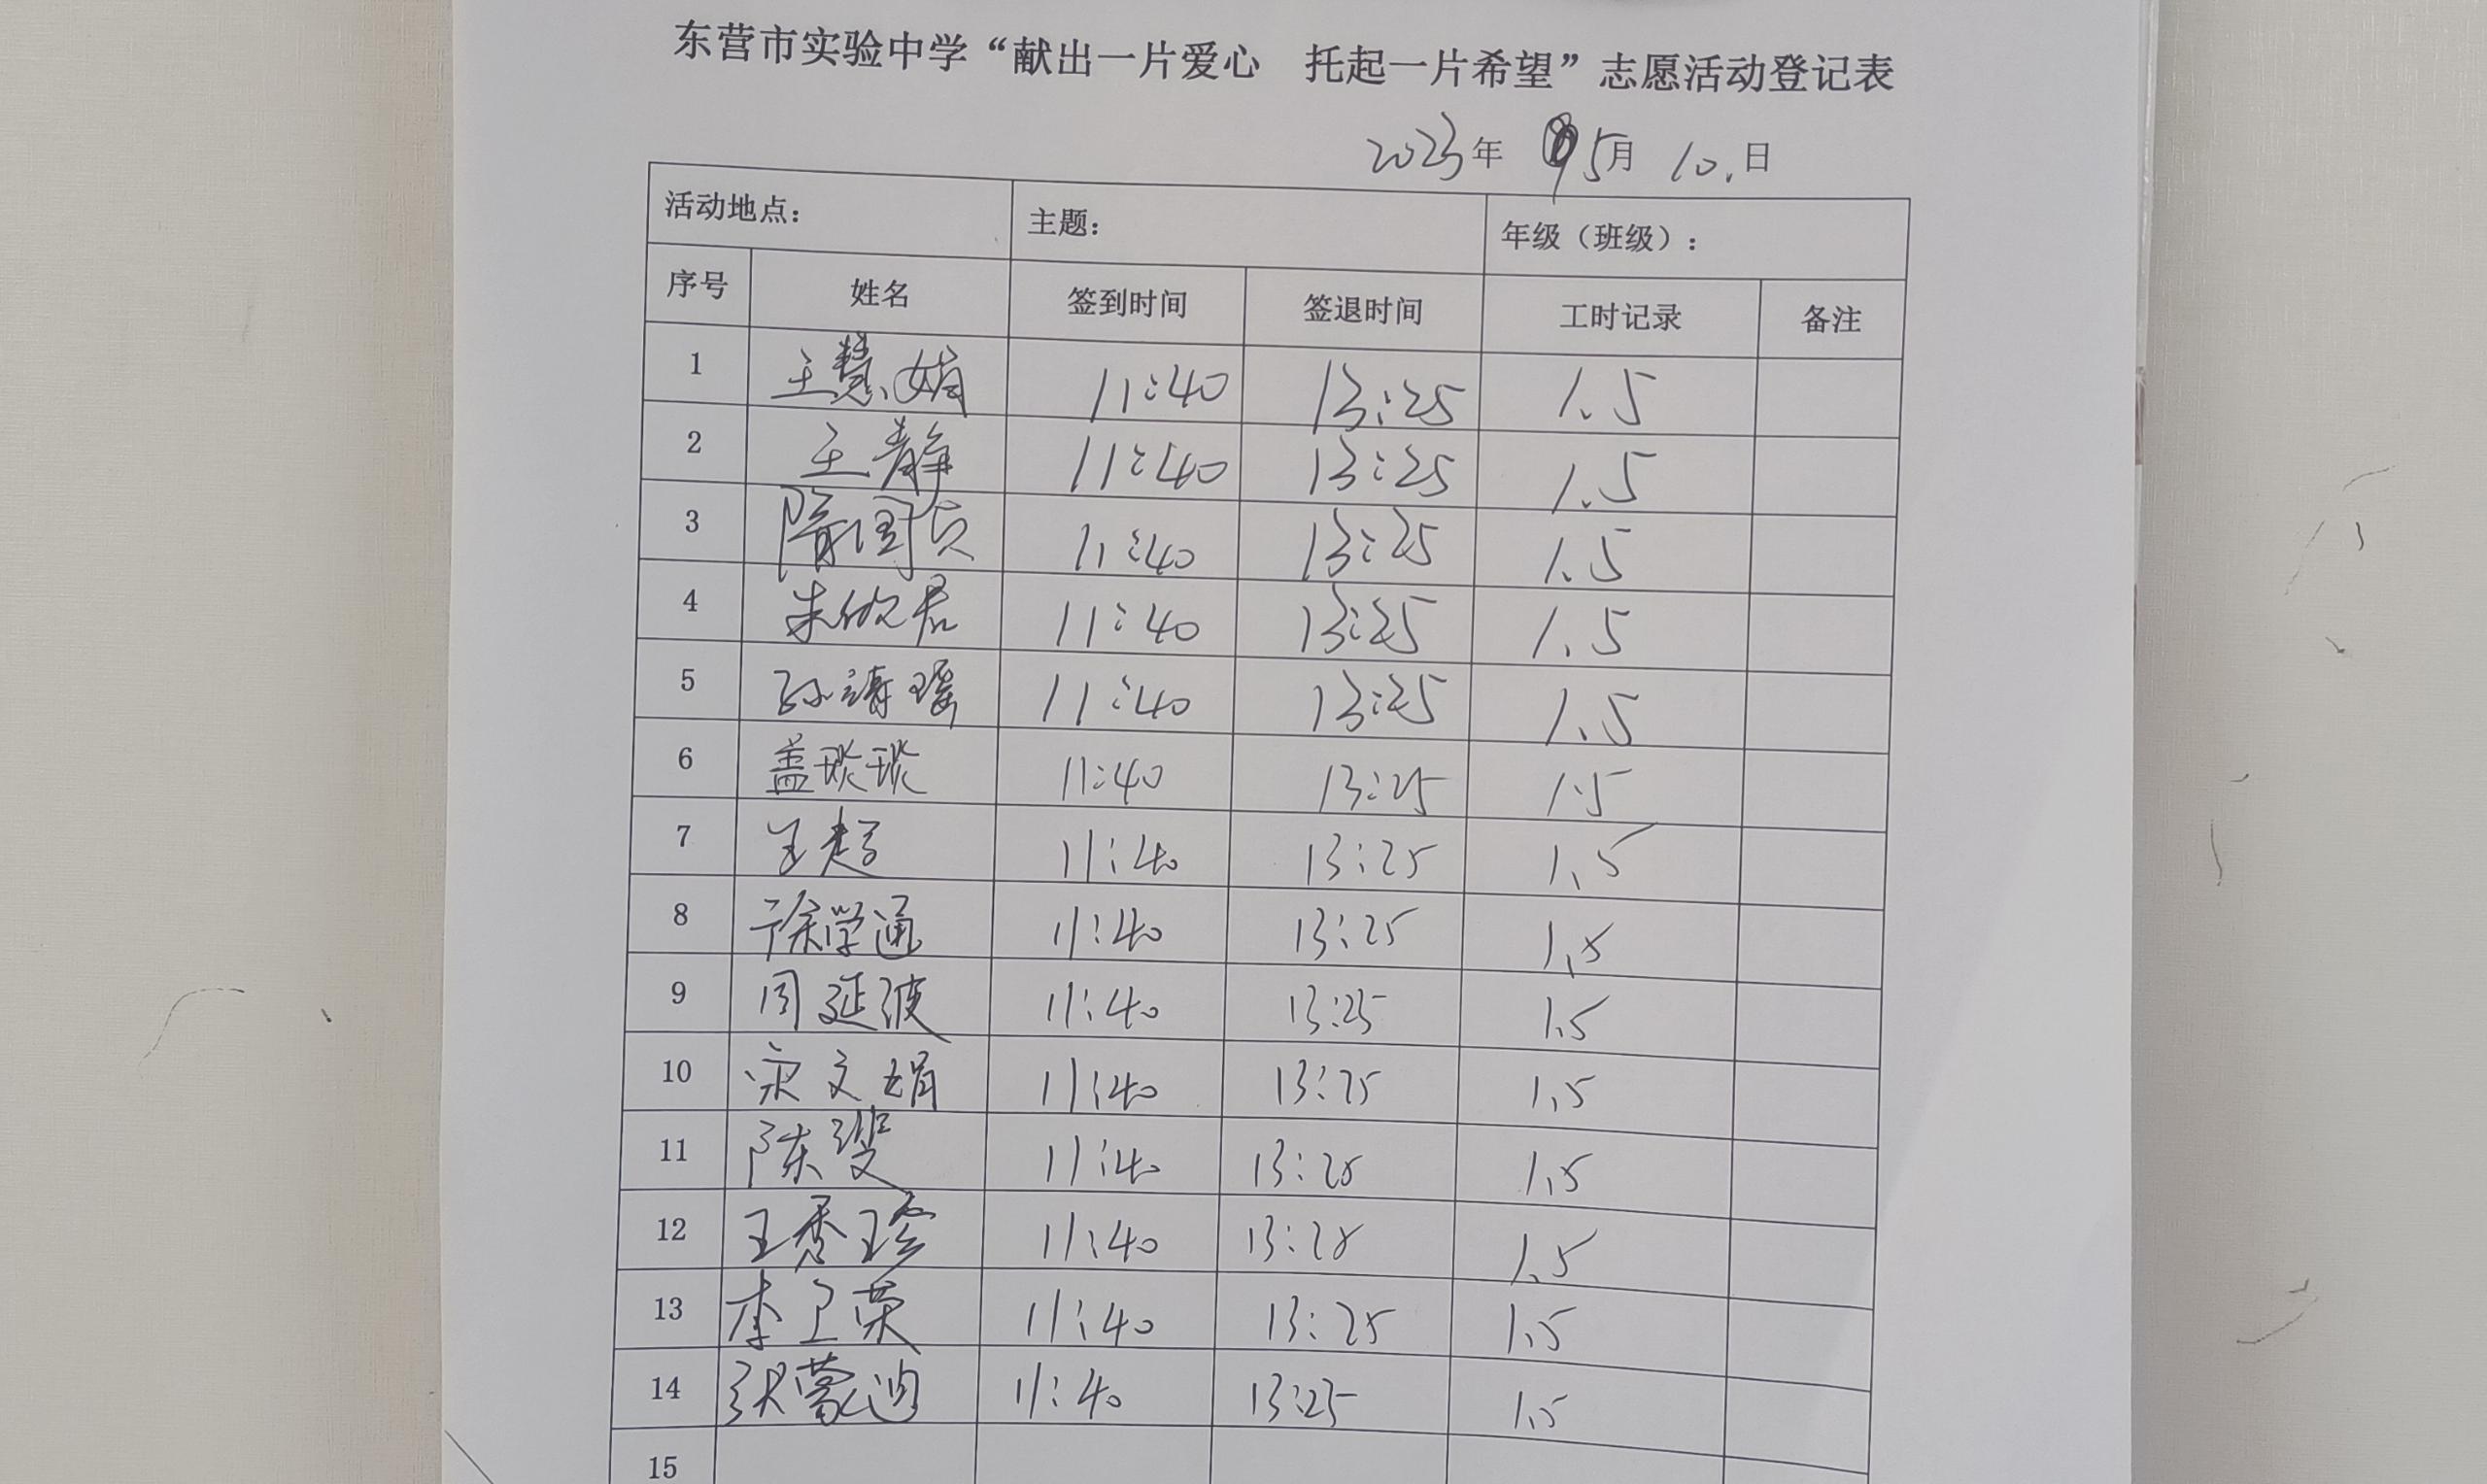 东营市实验中学“献出一片爱心 托起一片希望”志愿活动登记表
2023年 5月 10.日
活动地点： 主题： 年级（班级）：
序号 姓名 签到时间 签退时间 工时记录 备注
1 王慧娟 11:40 13:25 1.5
2 王静 11:40 13:25 1.5
3 隋国贞 11:40 13:25 1.5
4 朱依君 11:40 13:25 1.5
5 孙靖瑶 11:40 13:25 1.5
6 盖琰琰 11:40 13:25 1.5
7 王超 11:40 13:25 1.5
8 徐学通 11:40 13:25 1.5
9 周延波 11:40 13:25 1.5
10 宋文娟 11:40 13:25 1.5
11 陈斐 11:40 13:25 1.5
12 王秀珍 11:40 13:25 1.5
13 李卫荣 11:40 13:25 1.5
14 张蒙迪 11:40 13:25 1.5
15